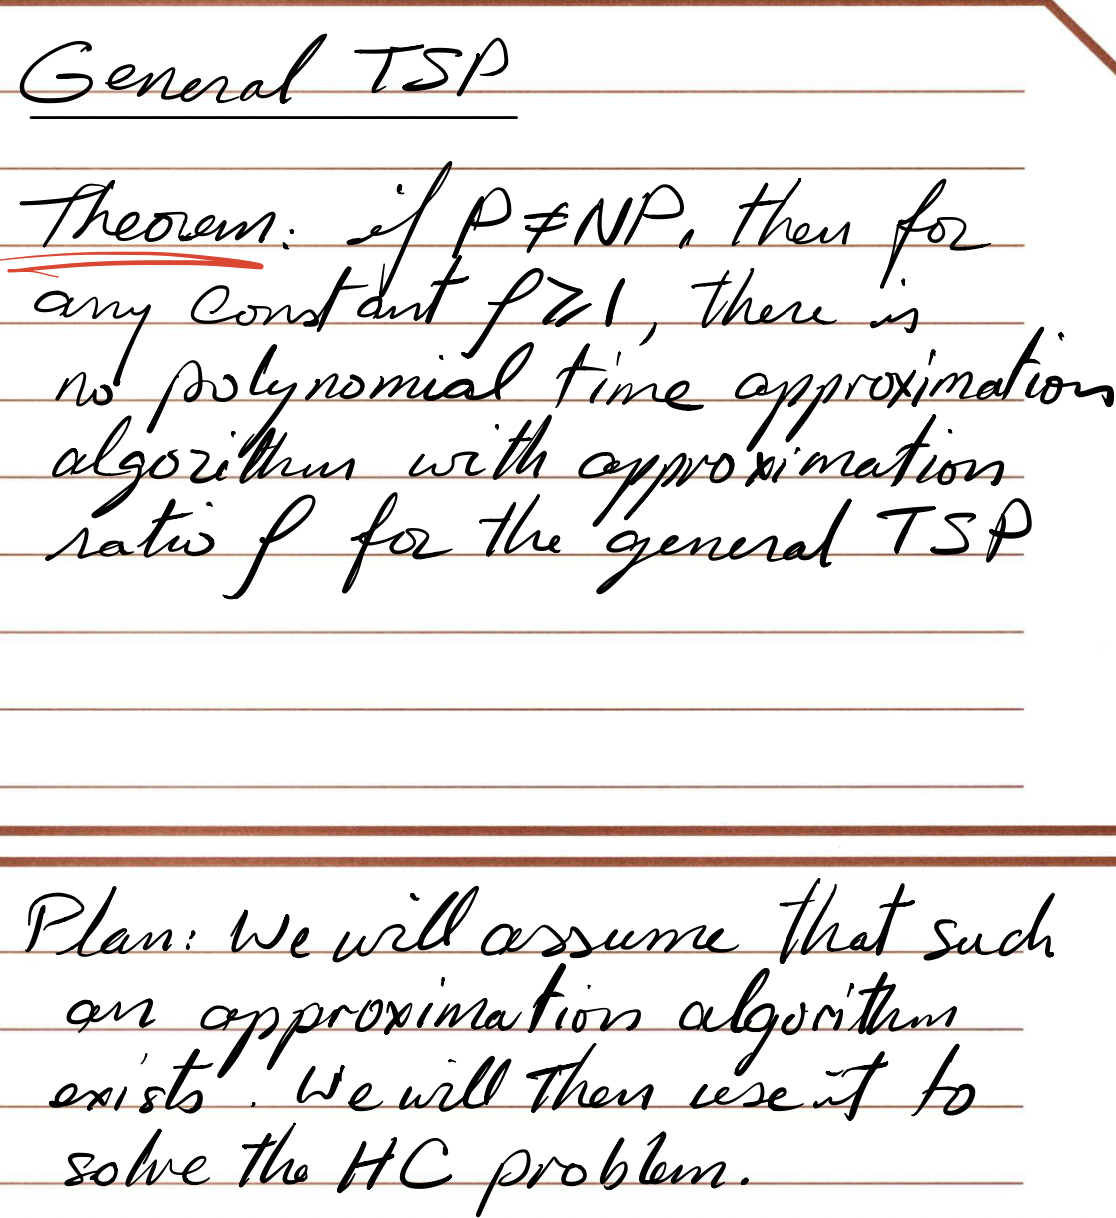 General TSP
Theorem: if P≠NP, then for
any constant ρ≥1, there is
no polynomial time approximation
algorithm with approximation
ratio ρ for the general TSP
Plan: We will assume that such
an approximation algorithm
exists. We will then use it to
solve the HC problem.